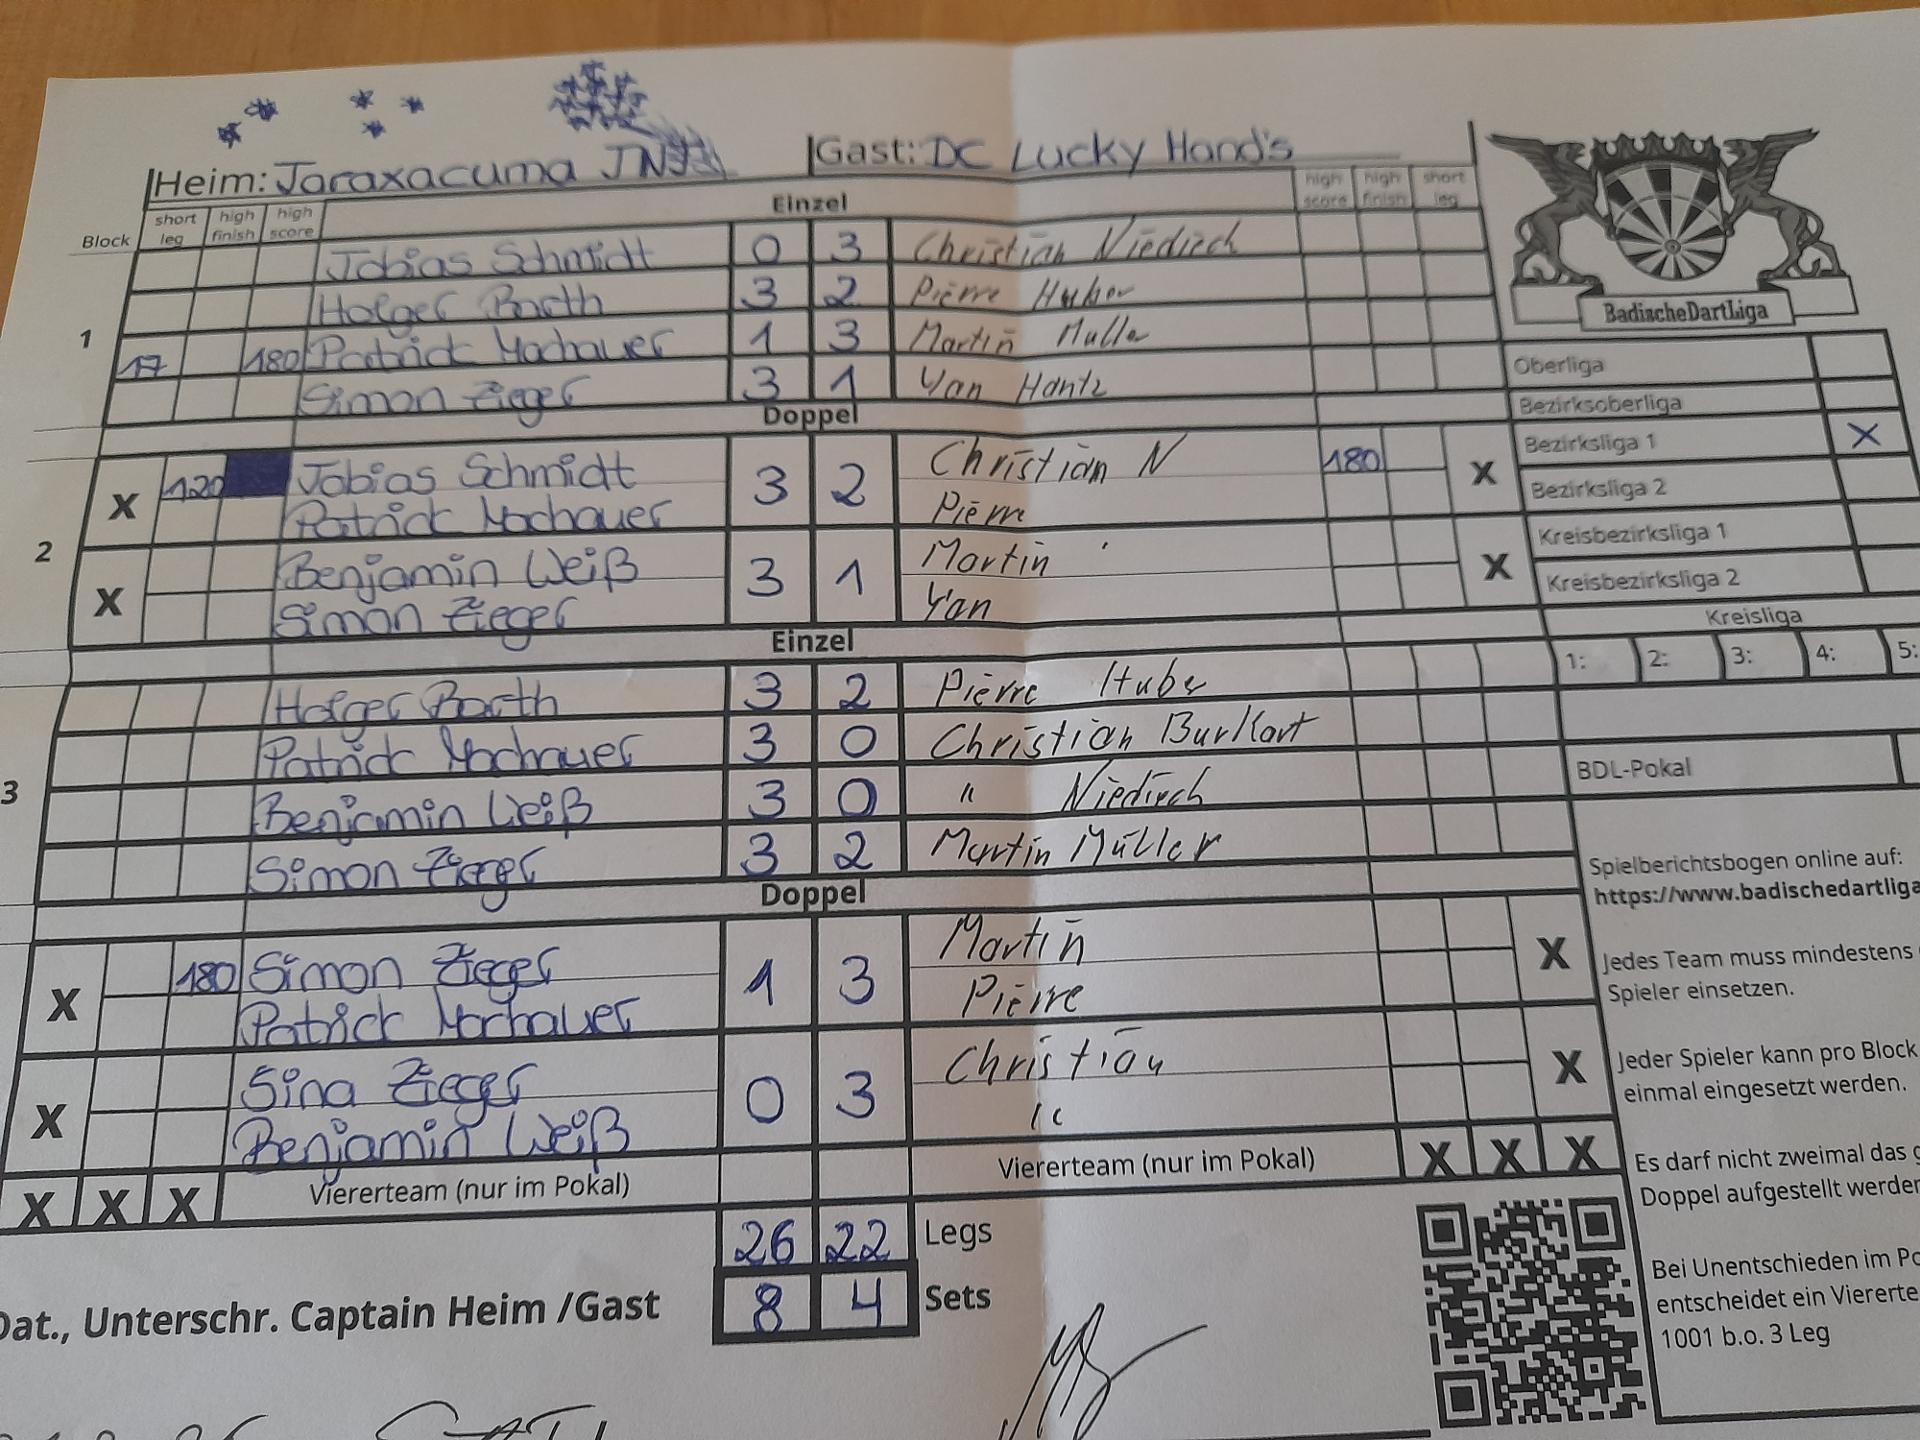 Heim: Taraxacuma Gast: DC Lucky Hand's
Block short leg high finish high score Einzel high score high finish short leg
1
Tobias Schmidt 0 3 Christian Niedrech
Holger Barth 3 2 Pierre Huber
17 180 Patrick Mochauer 1 3 Martin Muller
Simon Zieger 3 1 Yan Hantz
Doppel
2
X 120 Tobias Schmidt 3 2 Christian N 180 X
Patrick Mochauer Pierre
X Benjamin Weiß 3 1 Martin X
Simon Zieger Yan
Einzel
3
Holger Barth 3 2 Pierre Huber
Patrick Mochauer 3 0 Christian Burkart
Benjamin Weiß 3 0 " Niedrech
Simon Zieger 3 2 Martin Müller
Doppel
X 180 Simon Zieger 1 3 Martin X
Patrick Mochauer Pierre
X Sina Zieger 0 3 Christian X
Benjamin Weiß "
X X X Viererteam (nur im Pokal) Viererteam (nur im Pokal) X X X
26 22 Legs
8 4 Sets
Dat., Unterschr. Captain Heim /Gast
BadischeDartLiga
Oberliga
Bezirksoberliga
Bezirksliga 1 X
Bezirksliga 2
Kreisbezirksliga 1
Kreisbezirksliga 2
Kreisliga
1: 2: 3: 4: 5:
BDL-Pokal
Spielberichtsbogen online auf:
https://www.badischedartliga
Jedes Team muss mindestens
Spieler einsetzen.
Jeder Spieler kann pro Block
einmal eingesetzt werden.
Es darf nicht zweimal das
Doppel aufgestellt werden
Bei Unentschieden im Po
entscheidet ein Vierерte
1001 b.o. 3 Leg